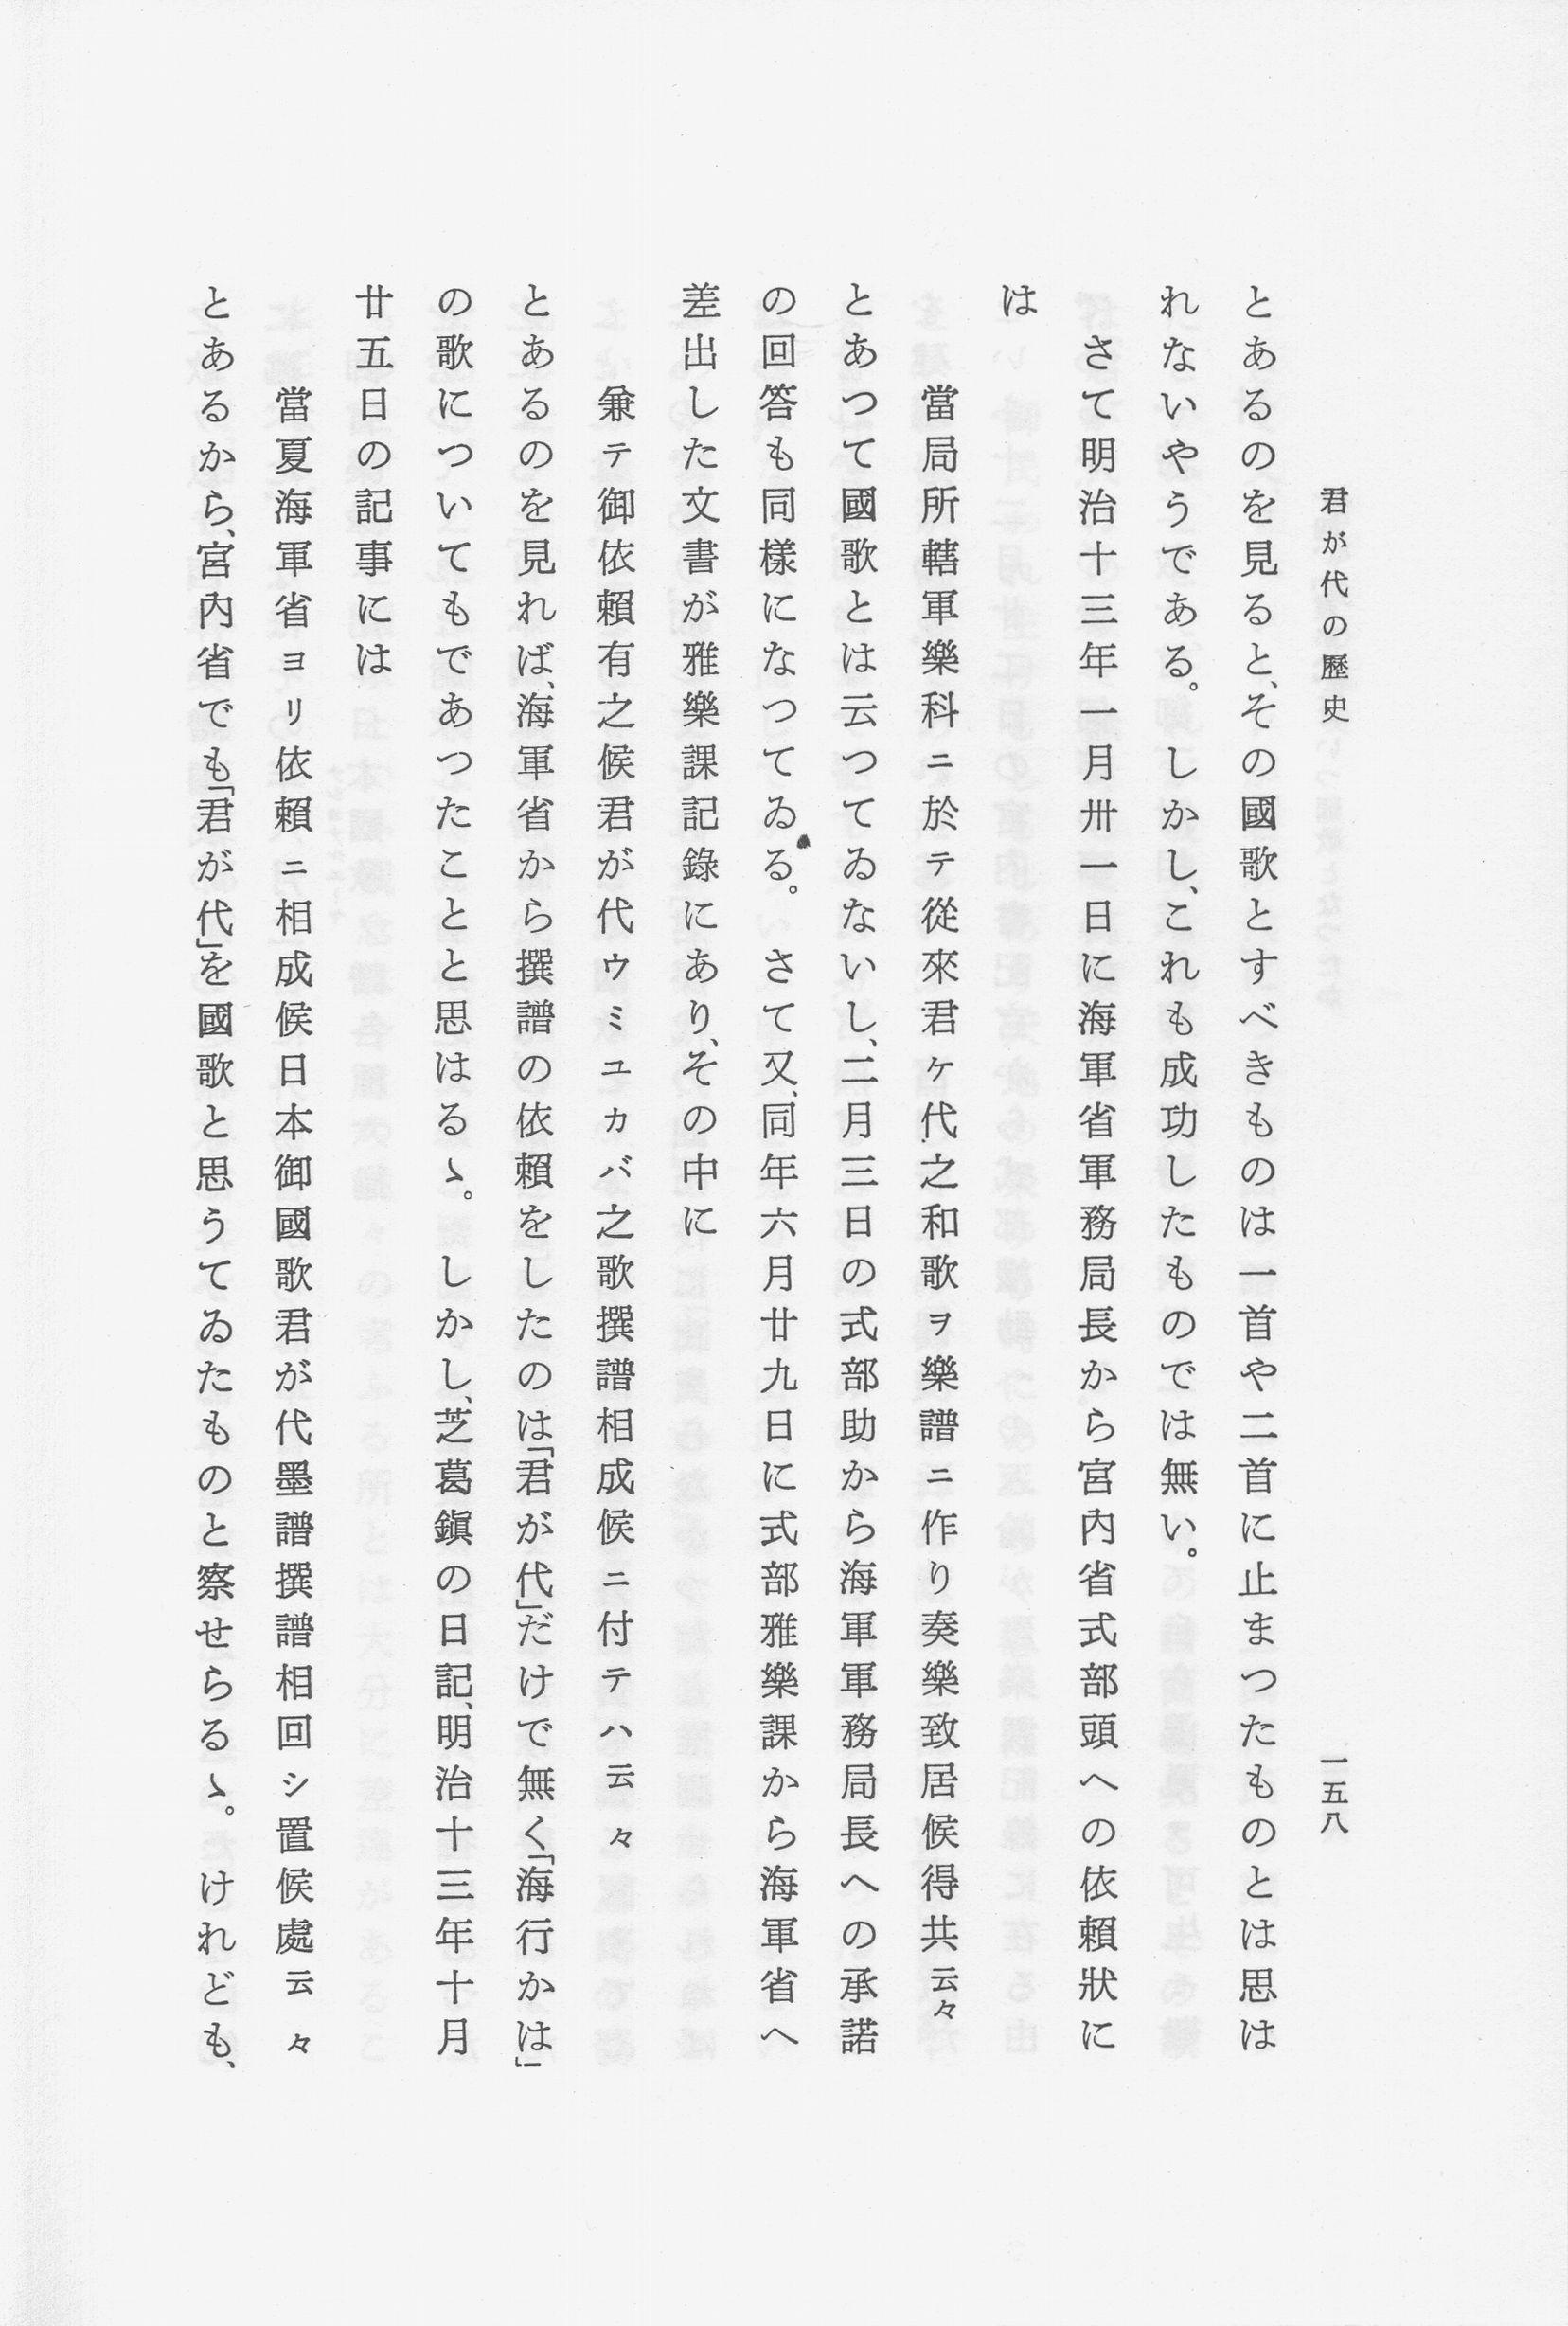 君が代の歷史
一五八
とあるのを見ると、その國歌とすべきものは一首や二首に止まつたものとは思は
れないやうである。しかし、これも成功したものでは無い。
さて明治十三年一月卅一日に海軍省軍務局長から宮內省式部頭への依賴狀に
は
當局所轄軍樂科ニ於テ從來君ケ代之和歌ヲ樂譜ニ作り奏樂致居候得共云々
とあつて國歌とは云つてゐないし、二月三日の式部助から海軍軍務局長への承諾
の回答も同樣になつてゐる。さて又、同年六月廿九日に式部雅樂課から海軍省へ
差出した文書が雅樂課記錄にあり、その中に
兼テ御依賴有之候君が代ウミユカバ之歌撰譜相成候ニ付テハ云々
とあるのを見れば、海軍省から撰譜の依賴をしたのは「君が代」だけで無く「海行かは」
の歌についてもであつたことと思はるゝ。しかし、芝葛鎭の日記、明治十三年十月
廿五日の記事には
當夏海軍省ヨリ依賴ニ相成候日本御國歌君が代墨譜撰譜相回シ置候處云々
とあるから、宮內省でも「君が代」を國歌と思うてゐたものと察せらるゝ。けれども、